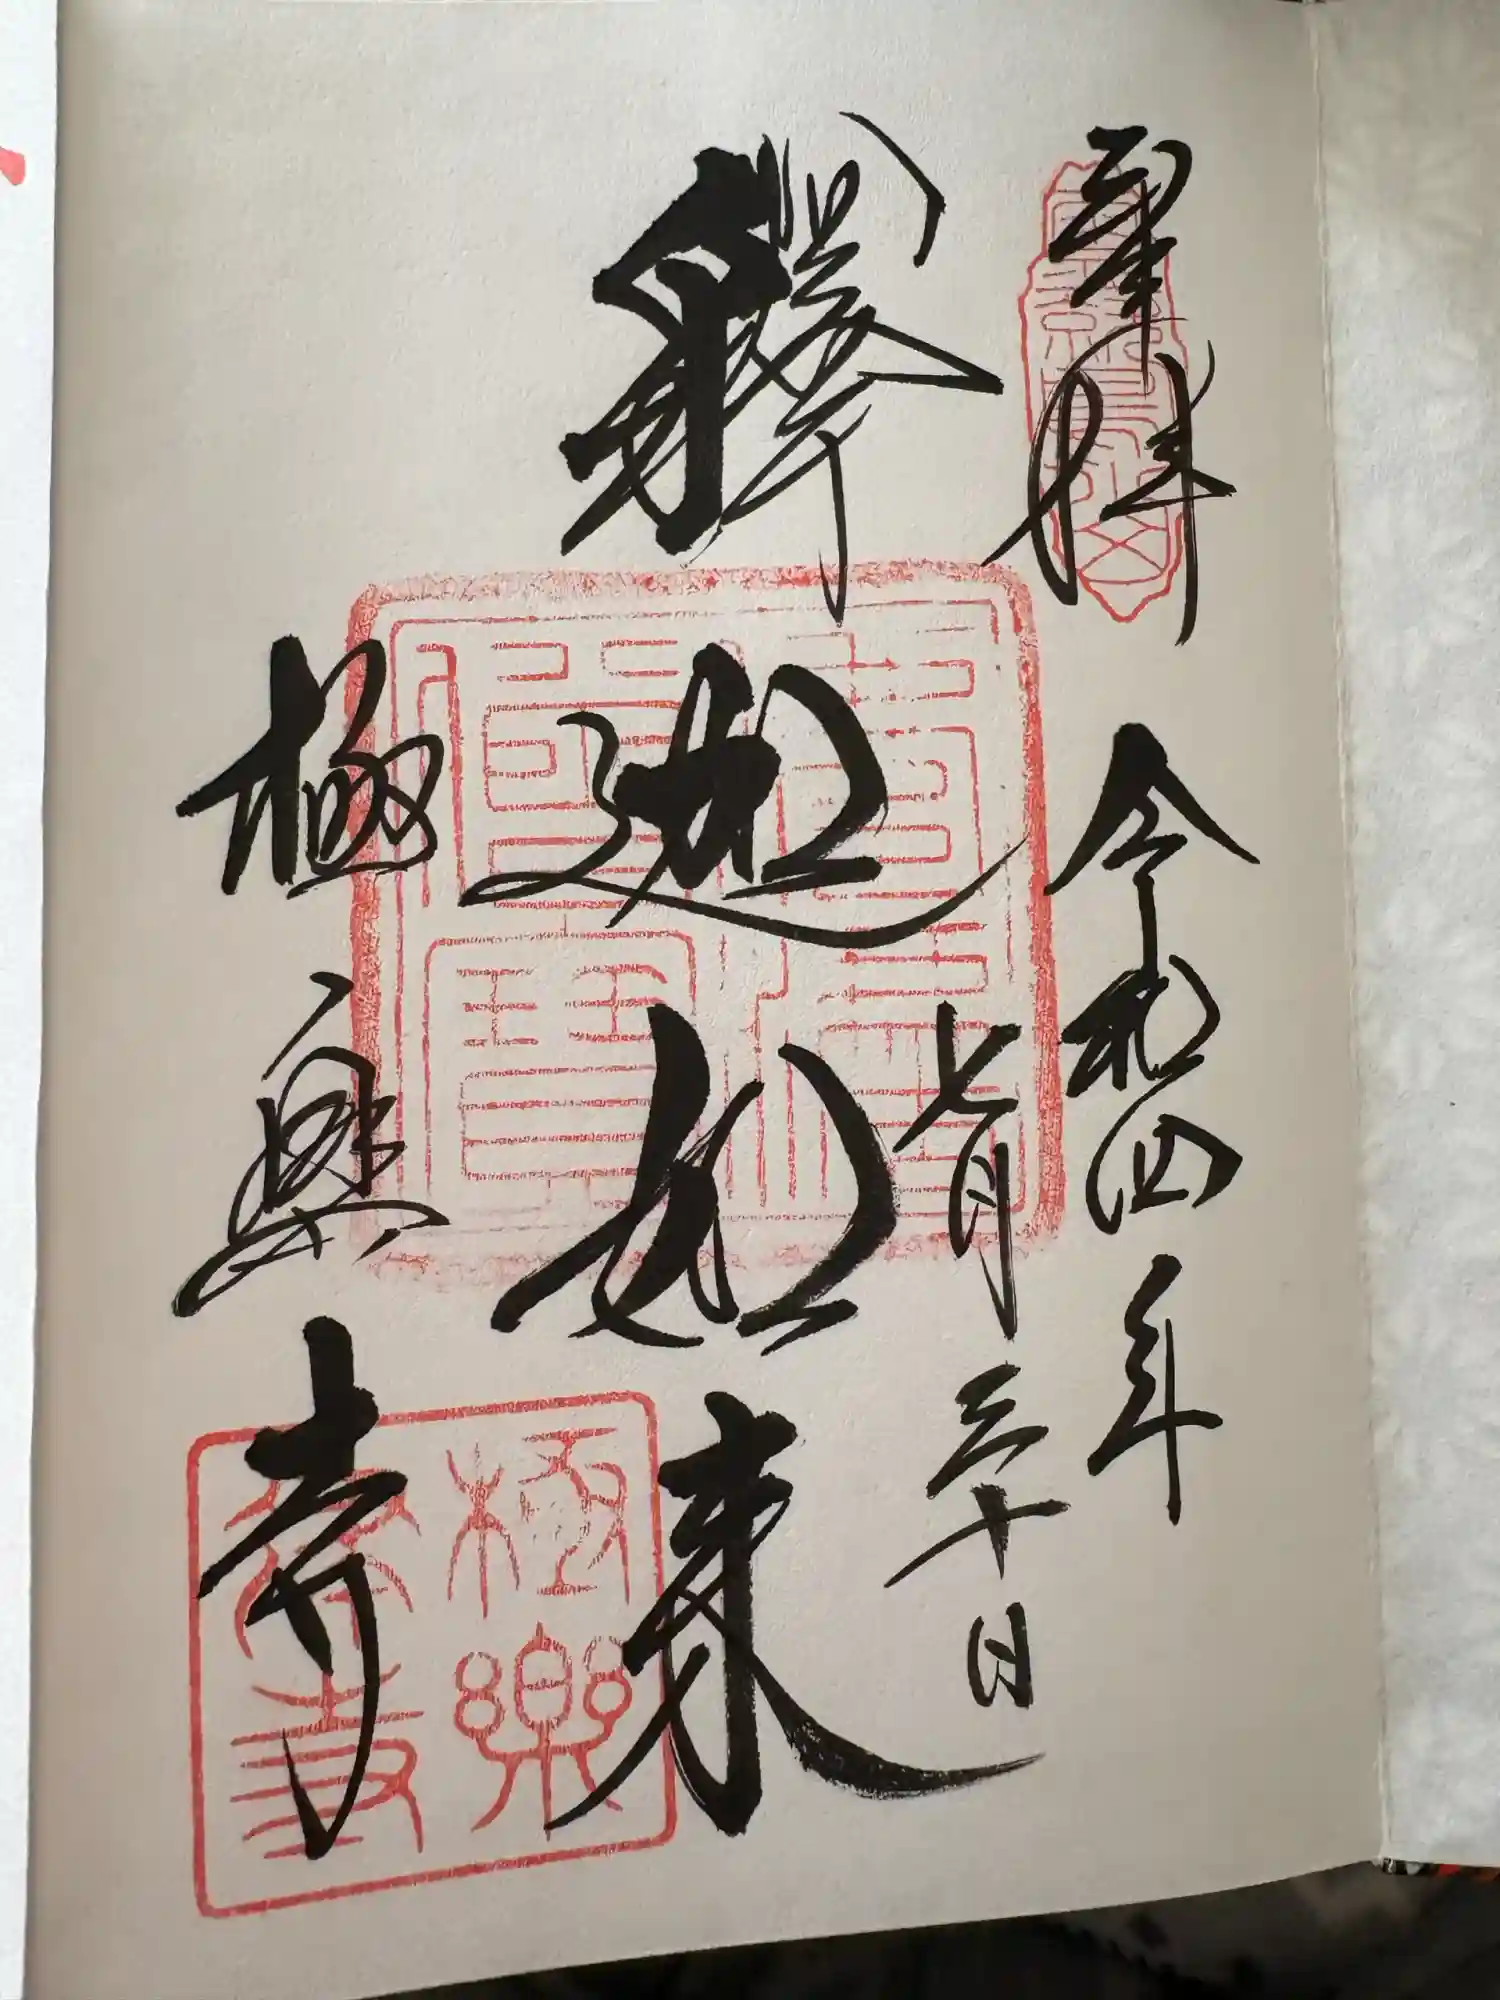 奉拝
令和四年
七月三十日
釋迦如来
極楽寺
極樂